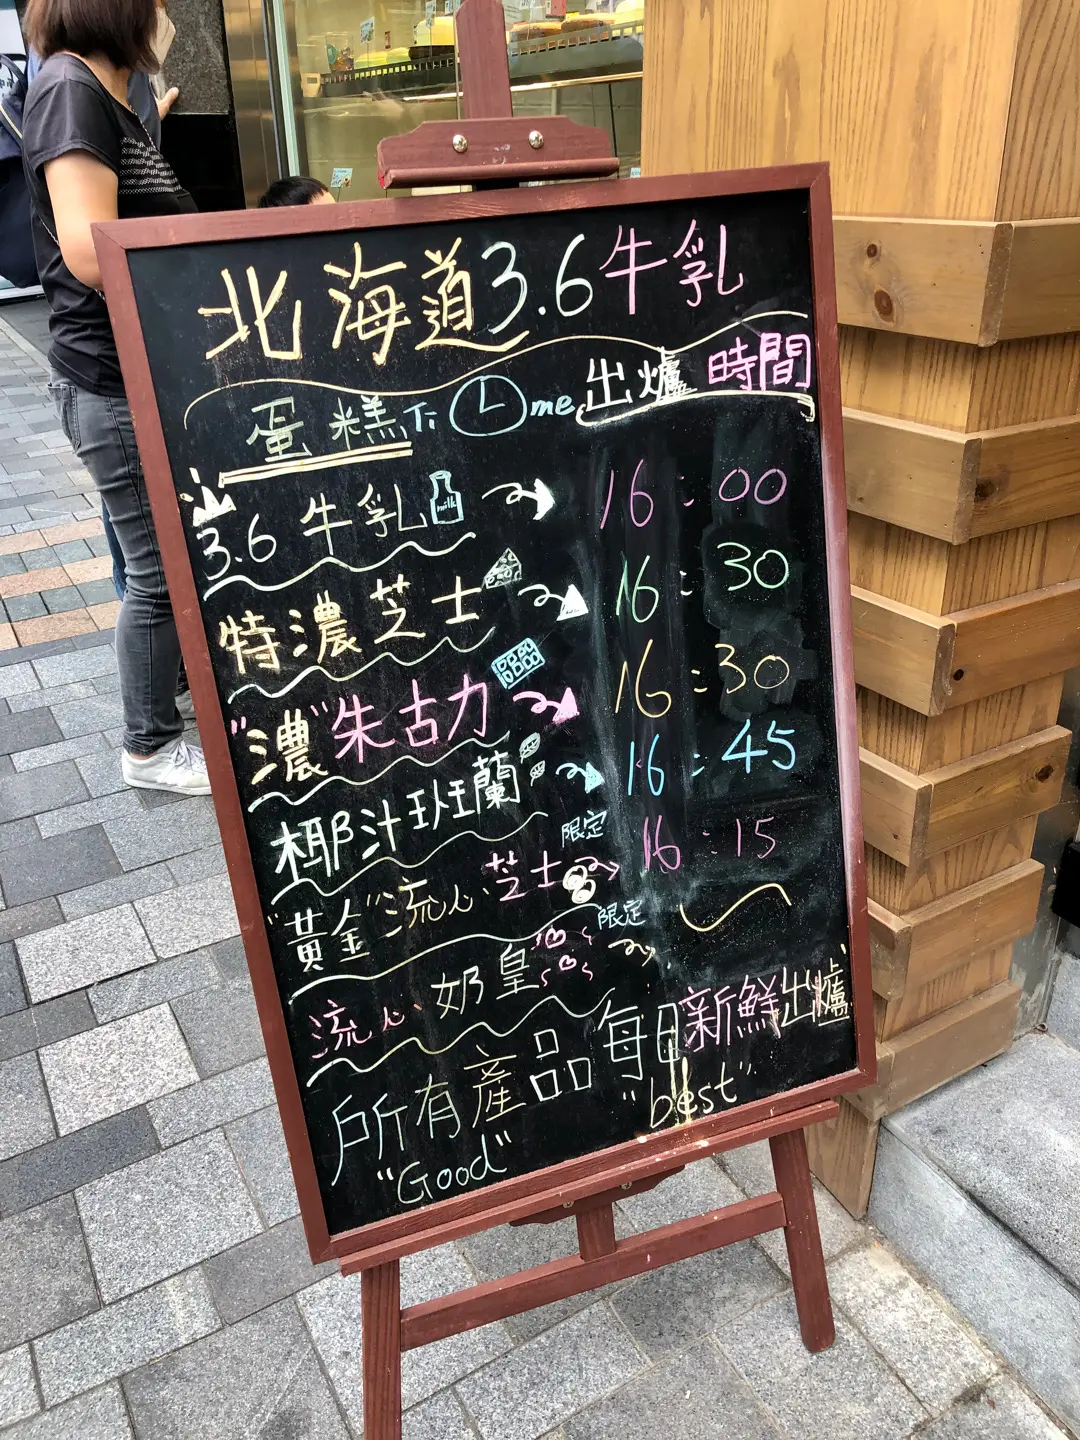 北海道3.6牛乳
蛋糕 me 出爐時間
3.6牛乳 milk 16:00
特濃芝士 16:30
"濃"朱古力 16:30
椰汁班蘭 16:45
"黃金"流心芝士 限定 16:15
流心奶皇 限定
所有產品每日新鮮出爐
"Good" "best"